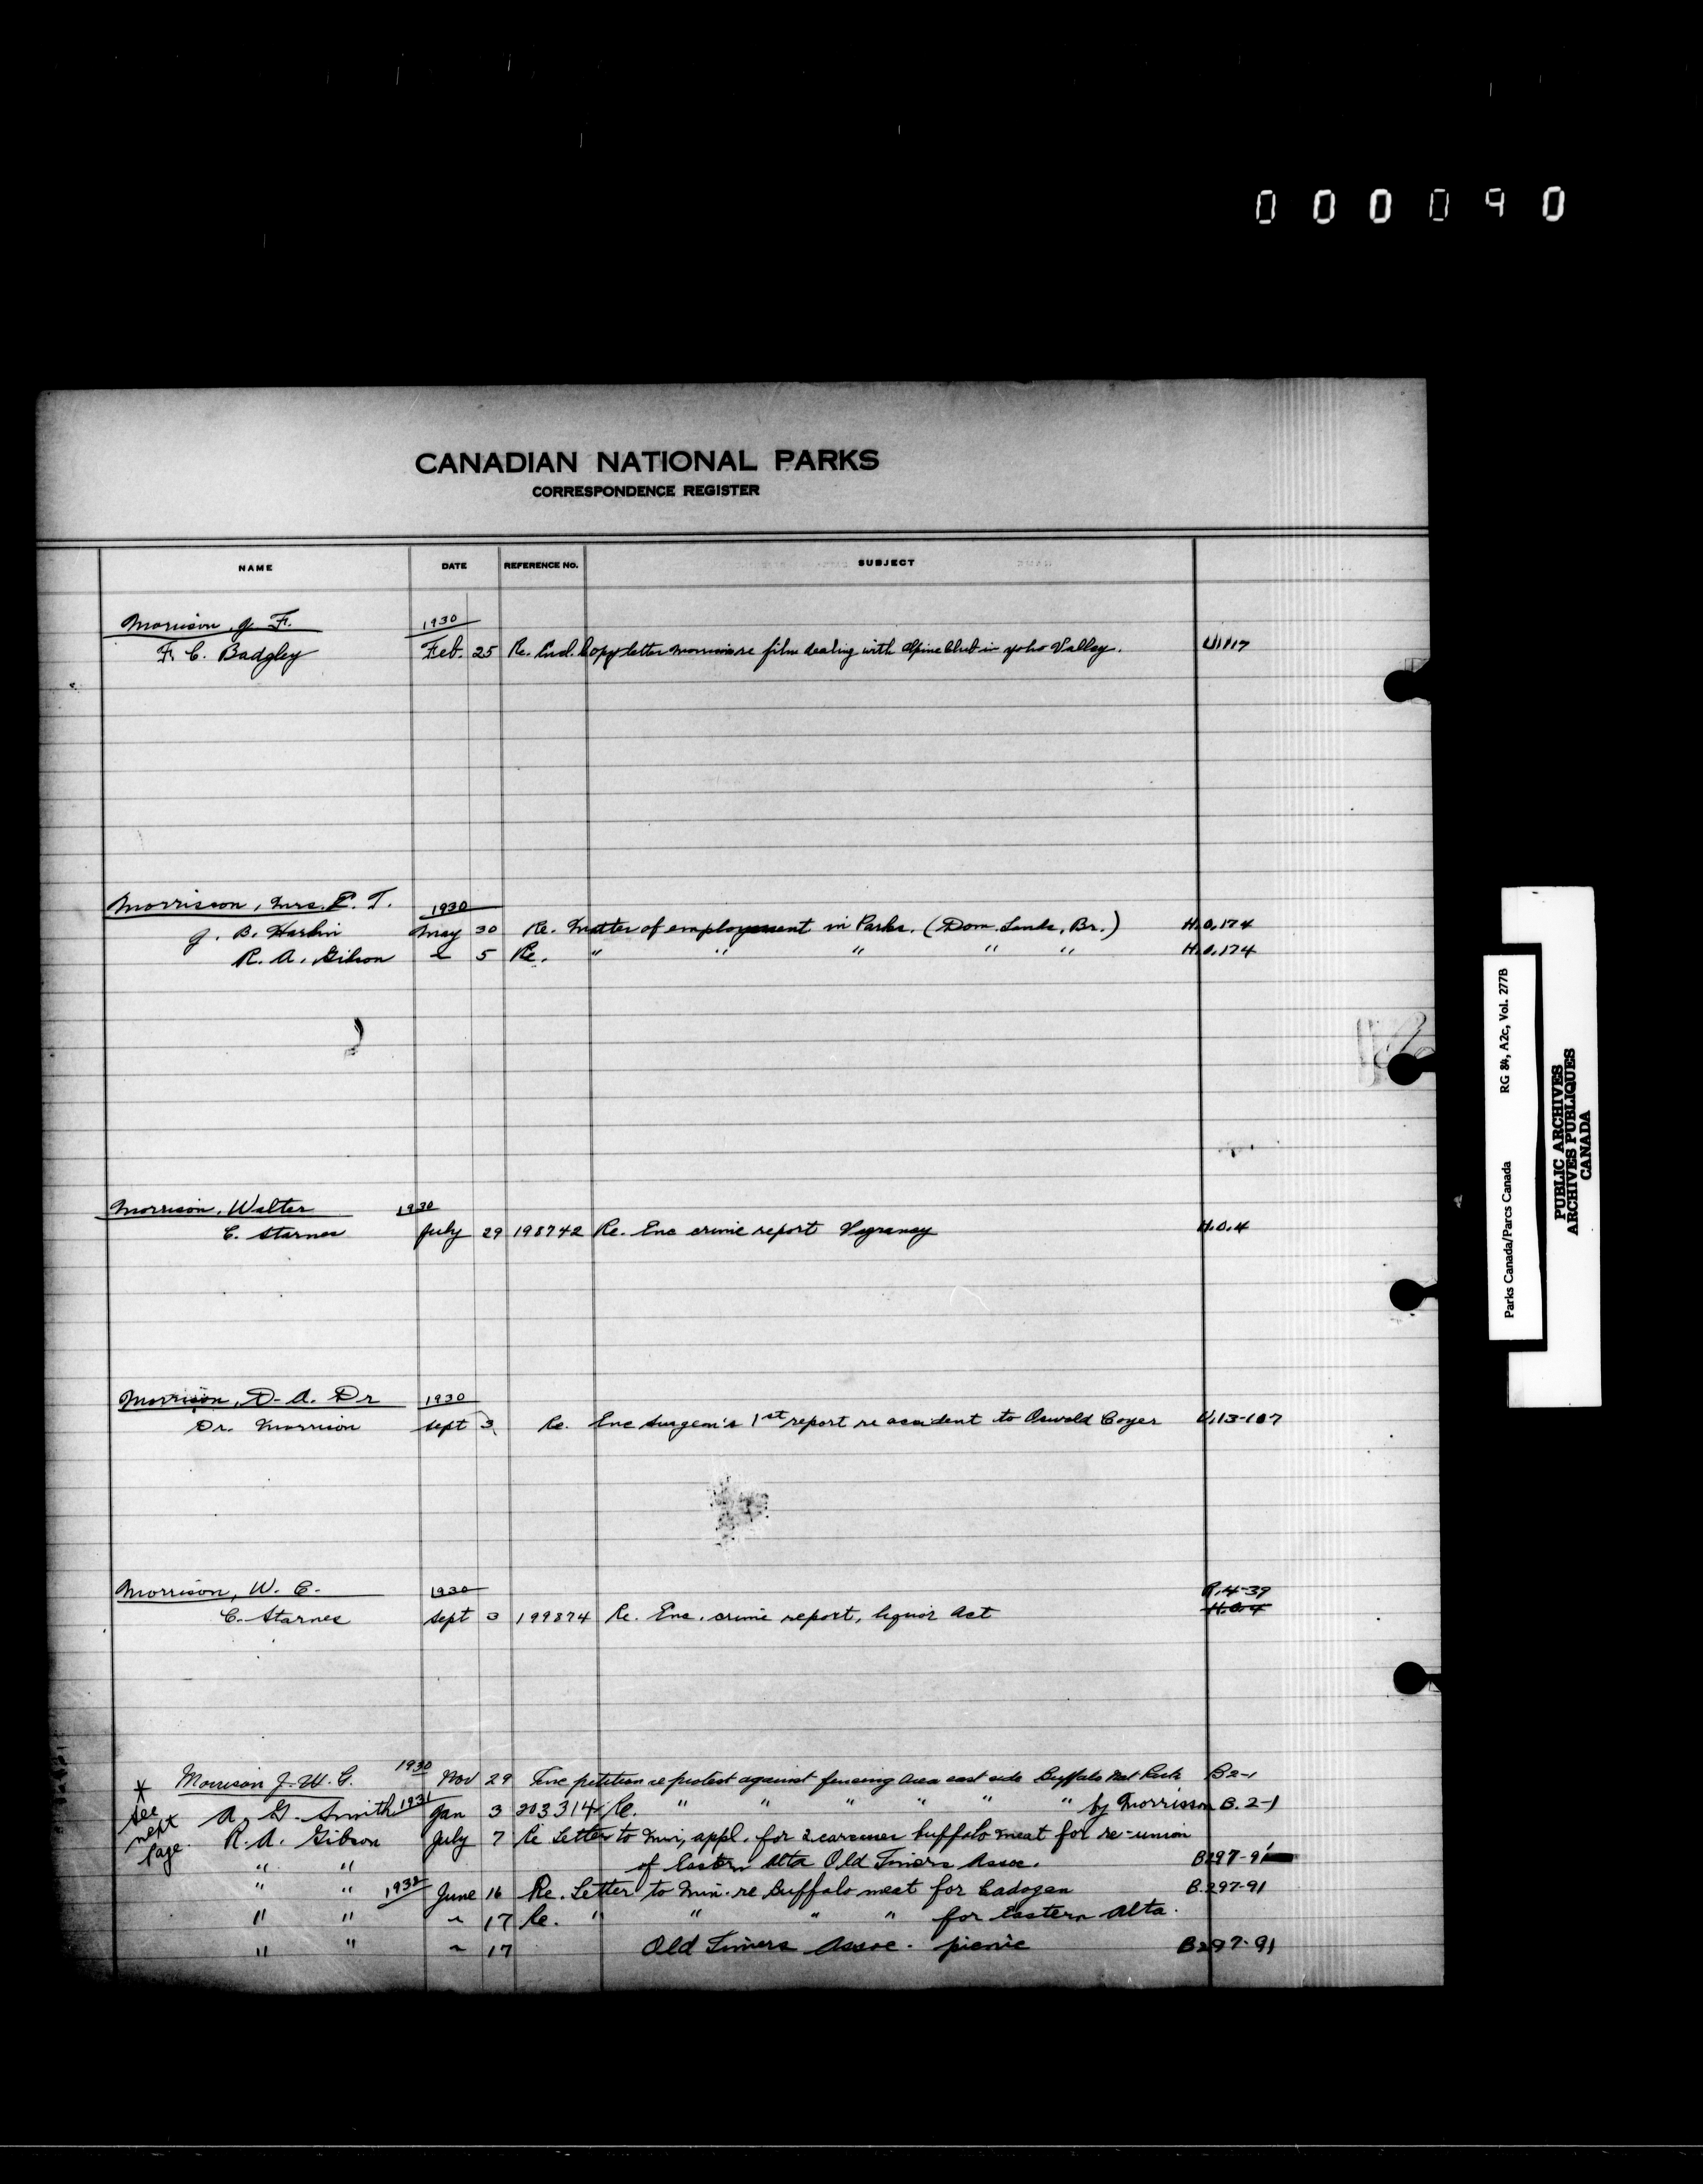 000090
CANADIAN NATIONAL PARKS
CORRESPONDENCE REGISTER
NAME DATE REFERENCE No. SUBJECT
Morrison, J. F. 1930
F. C. Badgley Feb. 25 Re. Encl. Copy letter Morrison re film dealing with Alpine Club in Yoho Valley. U1117
Morrison, Mrs. E. T. 1930
J. B. Harkin May 30 Re. Matter of employment in Parks. (Dom. Lands, Br.) H.O.174
R. A. Gibson " 5 Re. " " " " " H.O.174
Morrison, Walter 1930
C. Starnes July 29 198742 Re. Enc crime report Vagrancy H.O.4
Morrison, D. A. Dr 1930
Dr. Morrison Sept 3 Re. Enc surgeon's 1st report re accident to Oswald Coyer U.13-107
Morrison, W. C. 1930 R.4-39
C. Starnes Sept 3 199874 Re. Enc. crime report, liquor Act H.O.4
* Morrison J. W. G. 1930 Nov 29 Enc petition re protest against fencing area east side Buffalo Nat Park B2-1
see A. G. Smith 1931 Jan 3 203314 Re. " " " " " " by Morrison B.2-1
next R. A. Gibson July 7 Re Letter to Min, appl. for 2 carcasses buffalo meat for re-union
Page " " of Eastern Alta Old Timers Assoc. B297-91
" " 1932 June 16 Re. Letter to Min. re Buffalo meat for Cadogan B.297-91
" " " 17 Re. " " " " for Eastern Alta.
" " " 17 Old Timers Assoc. picnic B297-91
Parks Canada/Parcs Canada RG 84, A2c, Vol. 277B
PUBLIC ARCHIVES
ARCHIVES PUBLIQUES
CANADA